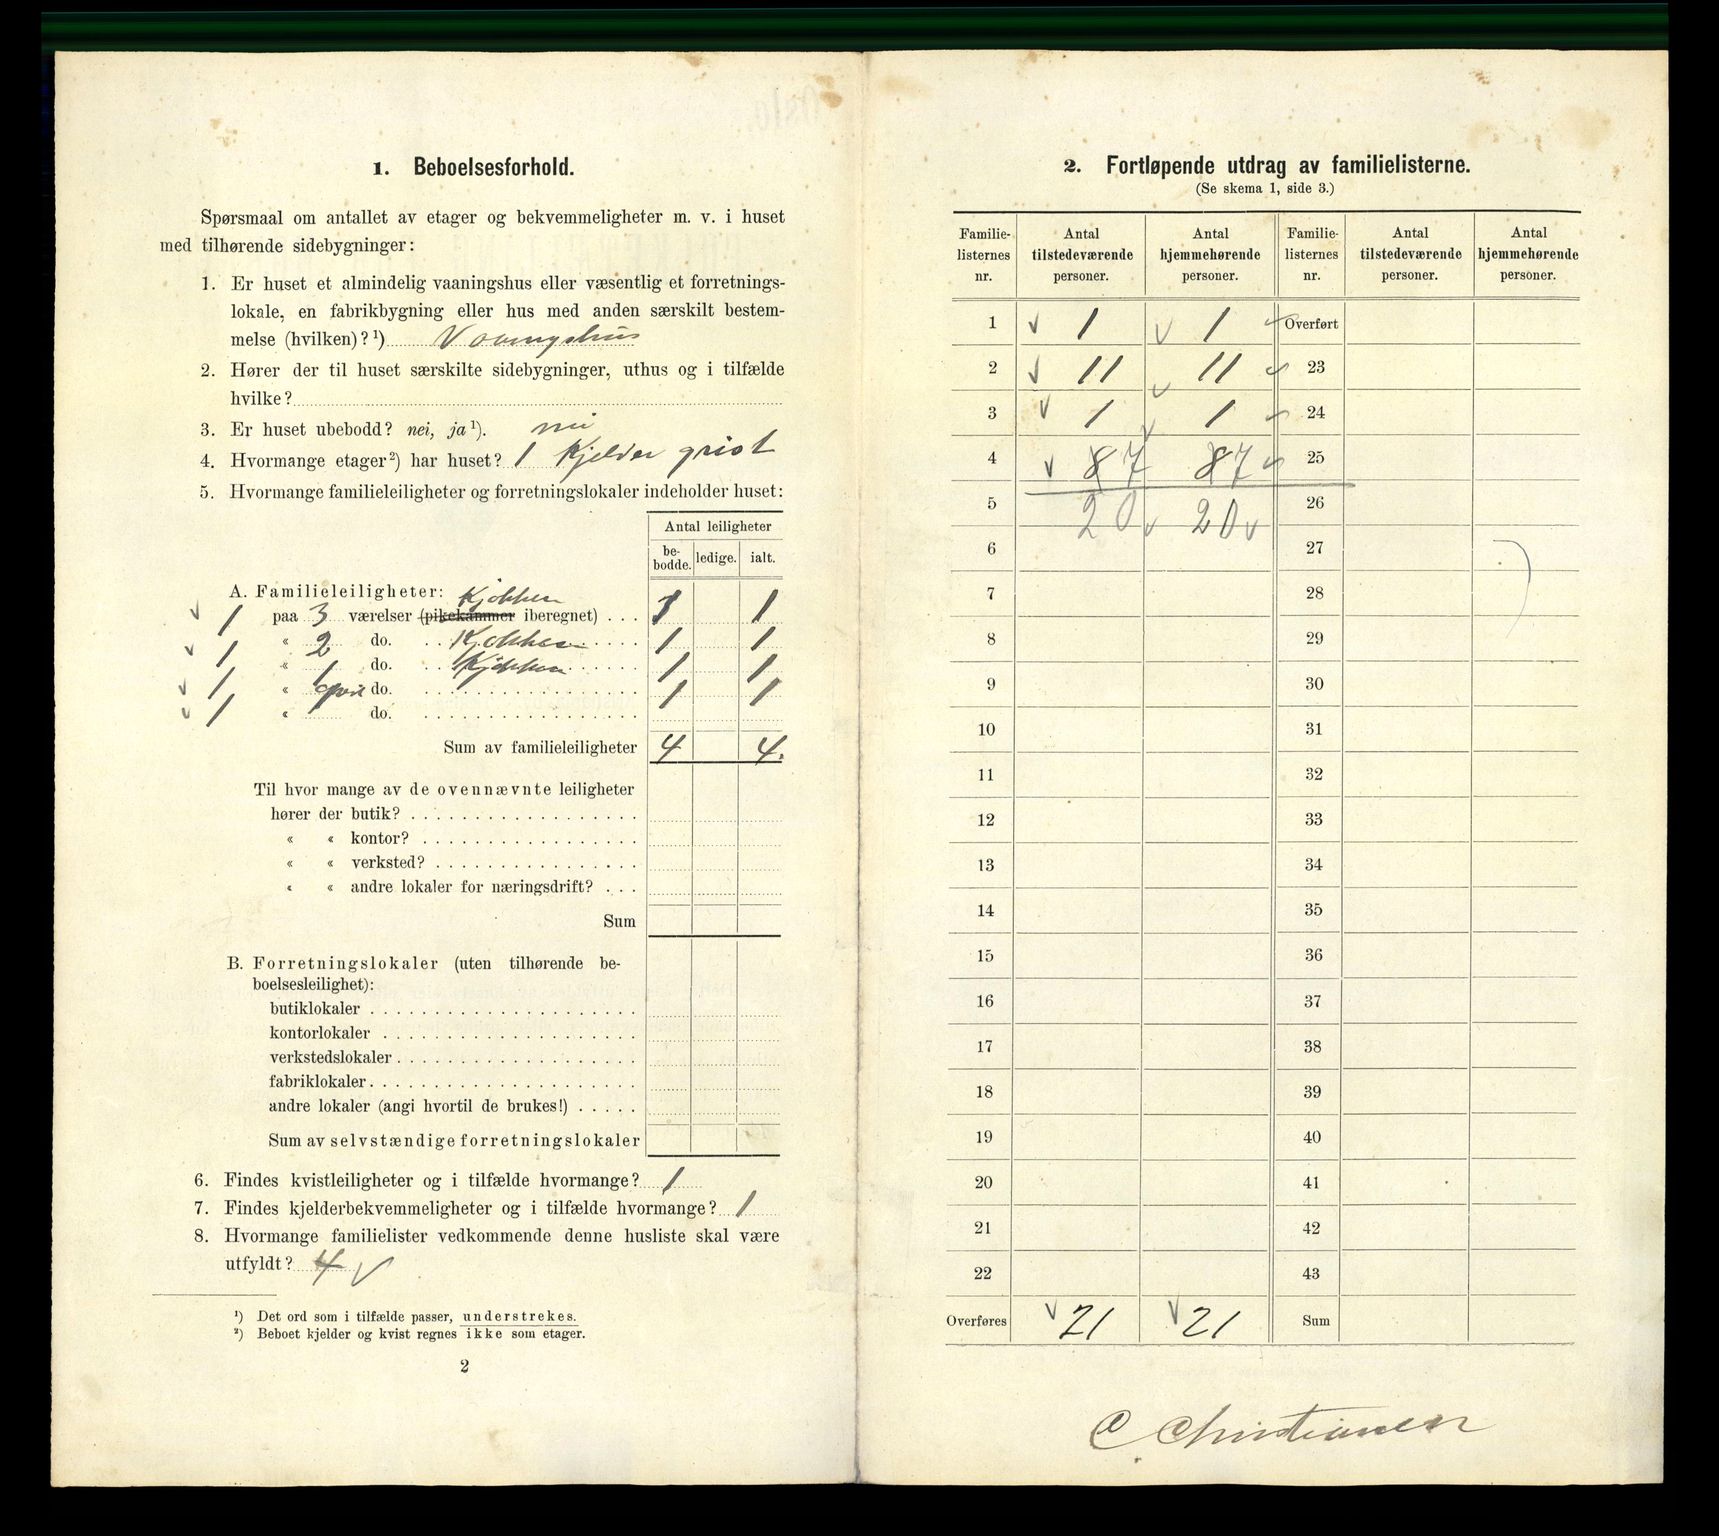 1. Beboelsesforhold.
Spørsmaal om antallet av etager og bekvemmeligheter m. v. i huset
med tilhørende sidebygninger:
1. Er huset et almindelig vaaningshus eller væsentlig et forretnings-
lokale, en fabrikbygning eller hus med anden særskilt bestem-
melse (hvilken)? ¹) Vaaningshus
2. Hører der til huset særskilte sidebygninger, uthus og i tilfælde
hvilke?
3. Er huset ubebodd? nei, ja ¹). nei
4. Hvormange etager ²) har huset? 1 Kjelder
5. Hvormange familieleiligheter og forretningslokaler indeholder huset:
Antal leiligheter
be-
bodde. ledige. ialt.
A. Familieleiligheter: Kjøkken
1 paa 3 værelser (pikekammer iberegnet) . . . 1 1
1 « 2 do. . . Kjøkken 1 1
1 « 1 do. . . Kjøkken 1 1
1 « do. 1 1
« do.
Sum av familieleiligheter 4 4.
Til hvor mange av de ovennævnte leiligheter
hører der butik?
« « kontor?
« « verksted?
« « andre lokaler for næringsdrift?
Sum
B. Forretningslokaler (uten tilhørende be-
boelsesleilighet):
butiklokaler
kontorlokaler
verkstedslokaler
fabriklokaler
andre lokaler (angi hvortil de brukes!)
Sum av selvstændige forretningslokaler
6. Findes kvistleiligheter og i tilfælde hvormange? 1
7. Findes kjelderbekvemmeligheter og i tilfælde hvormange? 1
8. Hvormange familielister vedkommende denne husliste skal være
utfyldt? 4
¹) Det ord som i tilfælde passer, understrekes.
²) Beboet kjelder og kvist regnes ikke som etager.
2
2. Fortløpende utdrag av familielisterne.
(Se skema 1, side 3.)
Familie-
listernes
nr. Antal
tilstedeværende
personer. Antal
hjemmehørende
personer. Familie-
listernes
nr. Antal
tilstedeværende
personer. Antal
hjemmehørende
personer.
1 1 1 Overført
2 11 11 23
3 1 1 24
4 8 7 8 7 25
5 20 20 26
6 27
7 28
8 29
9 30
10 31
11 32
12 33
13 34
14 35
15 36
16 37
17 38
18 39
19 40
20 41
21 42
22 43
Overføres 21 21 Sum
C Christiansen